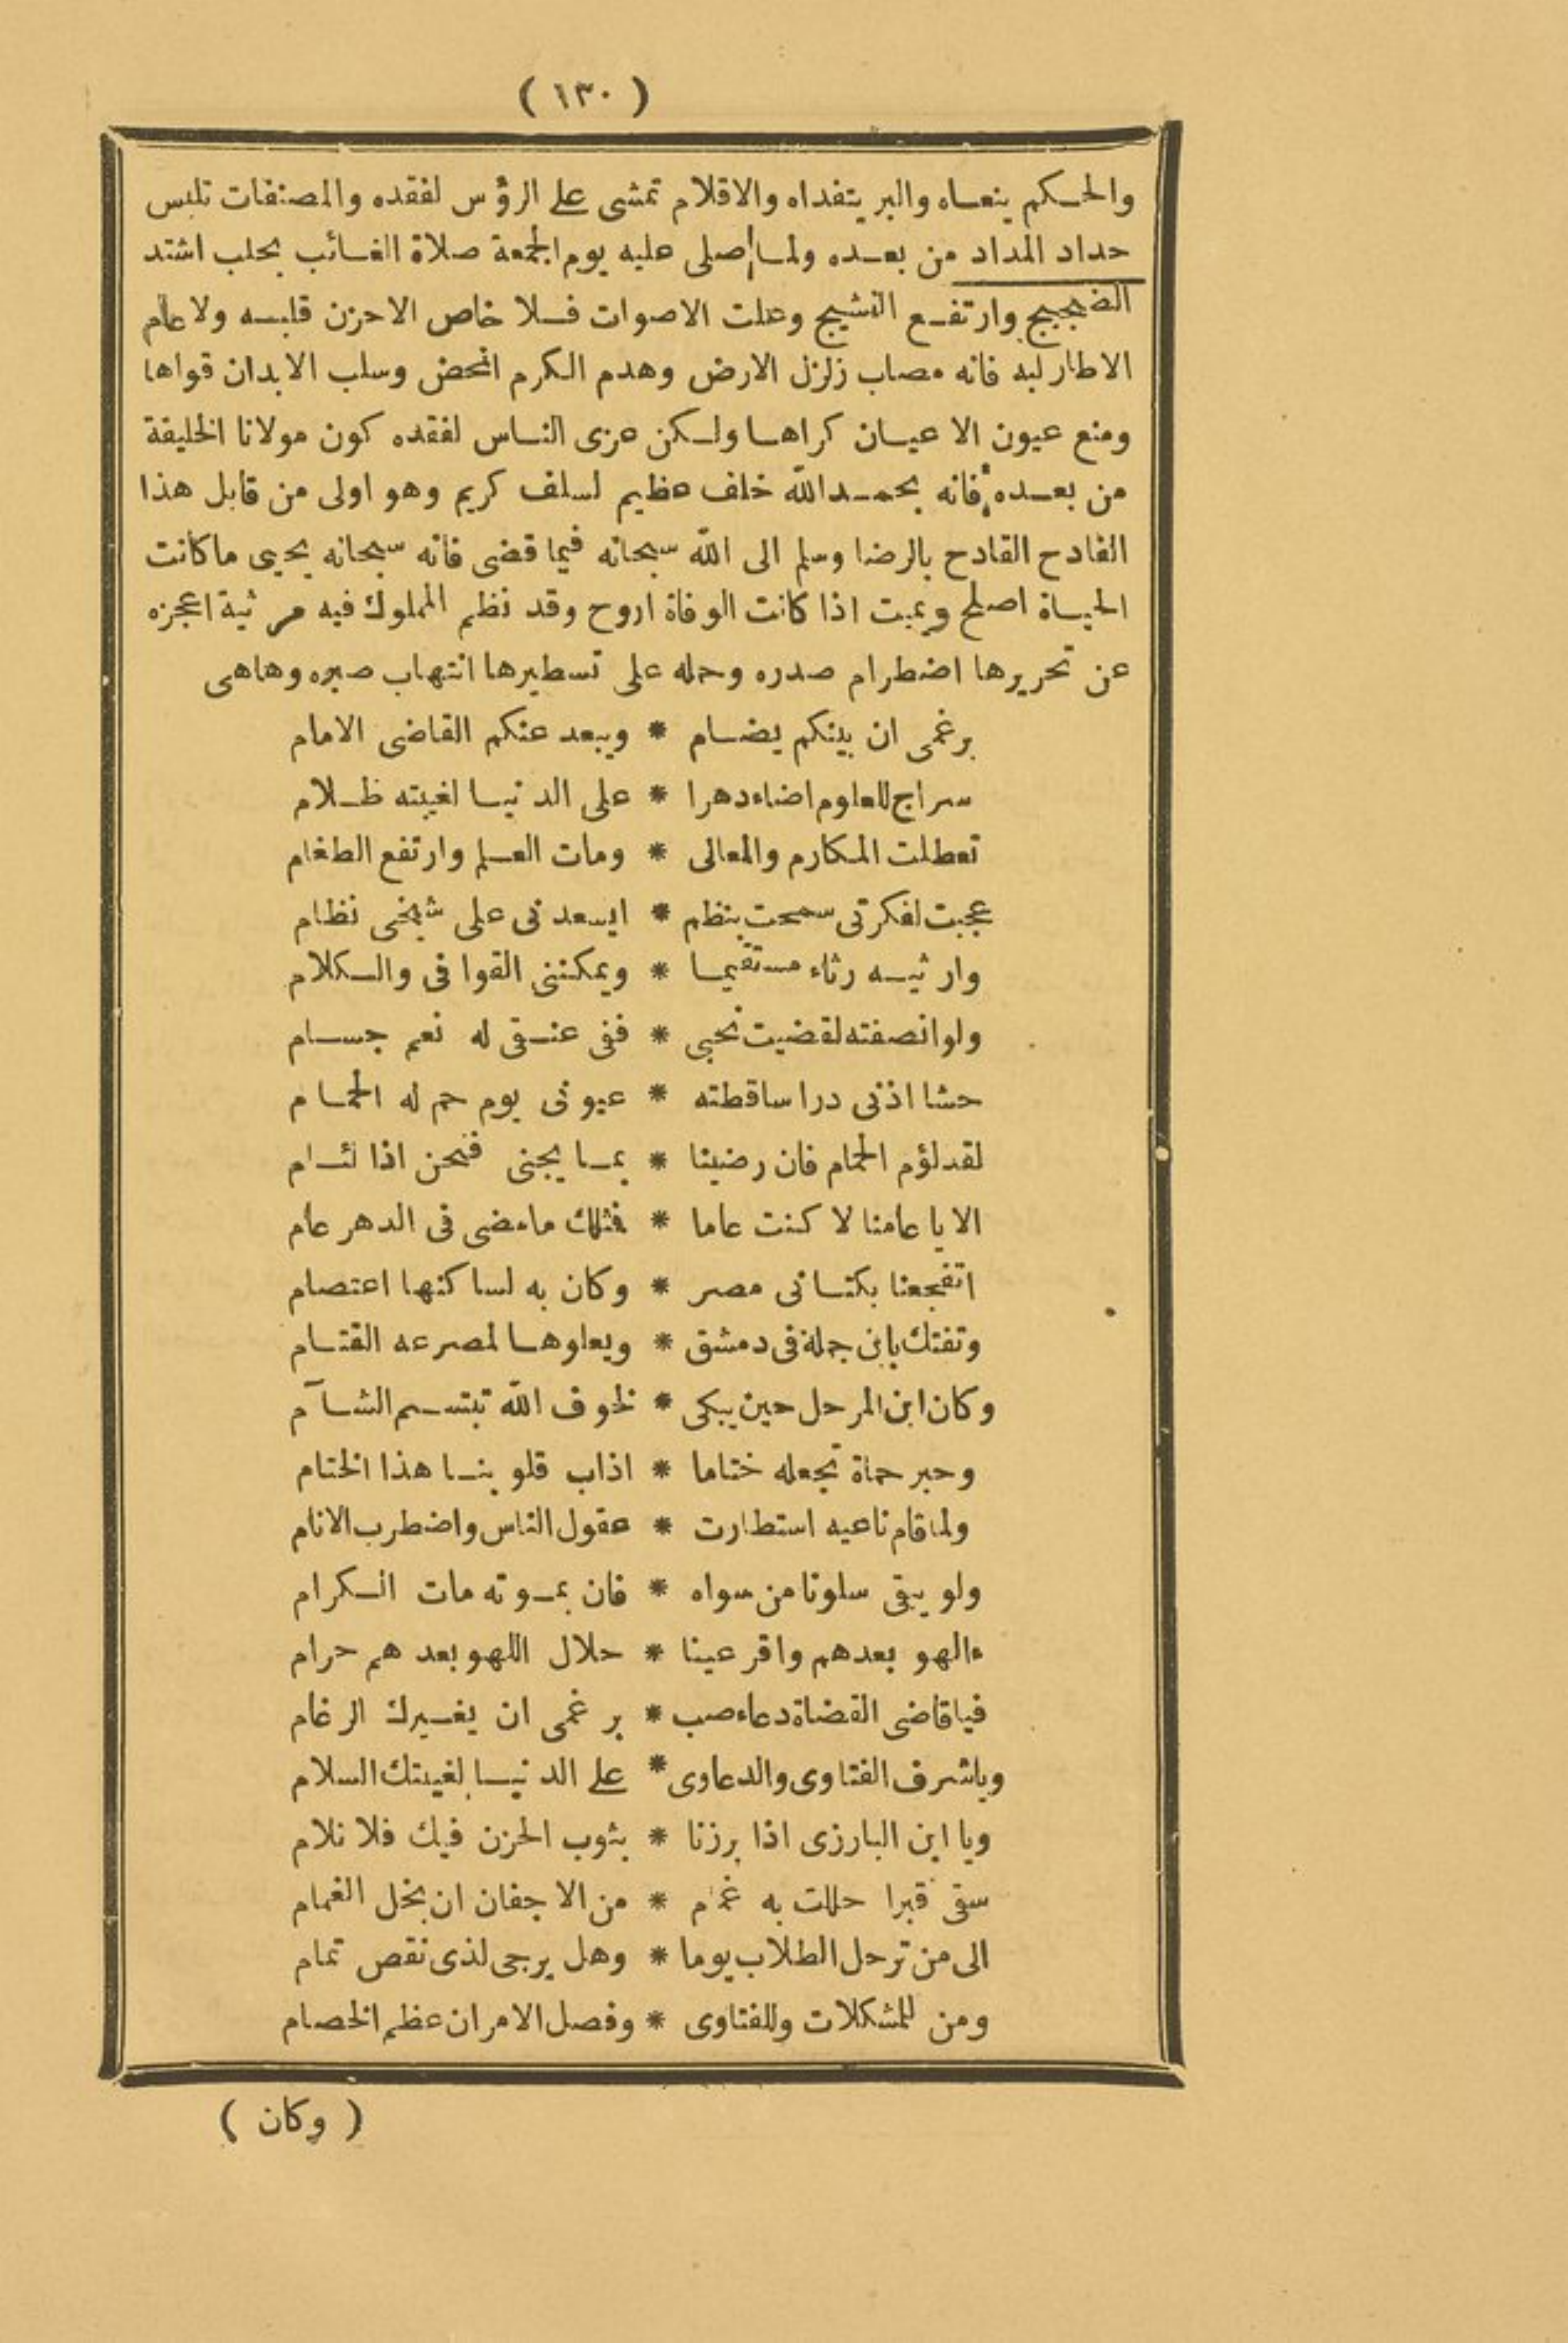 ( ١٣٠ )
والحكم ينعاه والبر يتفداه والاقلام تمشى على الرؤس لفقده والمصنفات تلبس
حداد المداد من بعده ولما صلى عليه يوم الجمعة صلاة الغائب بحلب اشتد
الضجيج وارتفع النشيج وعلت الاصوات فلا خاص الاحزن قلبه ولا عام
الاطار لبه فانه مصاب زلزل الارض وهدم الكرم المحض وسلب الابدان قواها
ومنع عيون الاعيان كراها ولكن عزى الناس لفقده كون مولانا الخليفة
من بعده فانه بحمد الله خلف عظيم لسلف كريم وهو اولى من قابل هذا
الفادح القادح بالرضا وسلم الى الله سبحانه فيما قضى فانه سبحانه يحيى ما كانت
الحياة اصلح ويميت اذا كانت الوفاة اروح وقد نظم المملوك فيه مرثية اعجزه
عن تحريرها اضطرام صدره وحمله على تسطيرها انتهاب صبره وهاهى
برغمى ان بينكم يضام * ويبعد عنكم القاضى الامام
سراج للعلوم اضاء دهرا * على الدنيا لغيبته ظلام
تعطلت المكارم والمعالى * ومات العلم وارتفع الطغام
عجبت لفكرتى سمحت بنظم * ايسعدنى على شيخى نظام
وارثيه رثاء مستقيما * ويمكننى القوافى والكلام
ولو انصفته لقضيت نحبى * ففى عنقى له نعم جسام
حشا اذنى درا ساقطته * عيونى يوم حم له الحمام
لقد لؤم الحمام فان رضينا * بما يجنى فنحن اذا لئام
الا يا عامنا لا كنت عاما * فمثلك ما مضى فى الدهر عام
اتفجعنا بكتانى مصر * وكان به لساكنها اعتصام
وتفتك بابن جملة فى دمشق * ويعلوها لمصرعه القتام
وكان ابن المرحل حين يبكى * لخوف الله تبتسم الشآم
وحبر حماة تجعله ختاما * اذاب قلوبنا هذا الختام
ولما قام ناعيه استطارت * عقول الناس واضطرب الانام
ولو يبقى سلونا من سواه * فان بموته مات الكرام
ءالهو بعدهم واقر عينا * حلال اللهو بعدهم حرام
فيا قاضى القضاة دعاء صب * برغمى ان يغيرك الرغام
ويا شرف الفتاوى والدعاوى * على الدنيا لغيبتك السلام
ويا ابن البارزى اذا برزنا * بثوب الحزن فيك فلا نلام
سقى قبرا حللت به غمام * من الاجفان ان بخل الغمام
الى من ترحل الطلاب يوما * وهل يرجى لذى نقص تمام
ومن للمشكلات وللفتاوى * وفصل الامر ان عظم الخصام
( وكان )